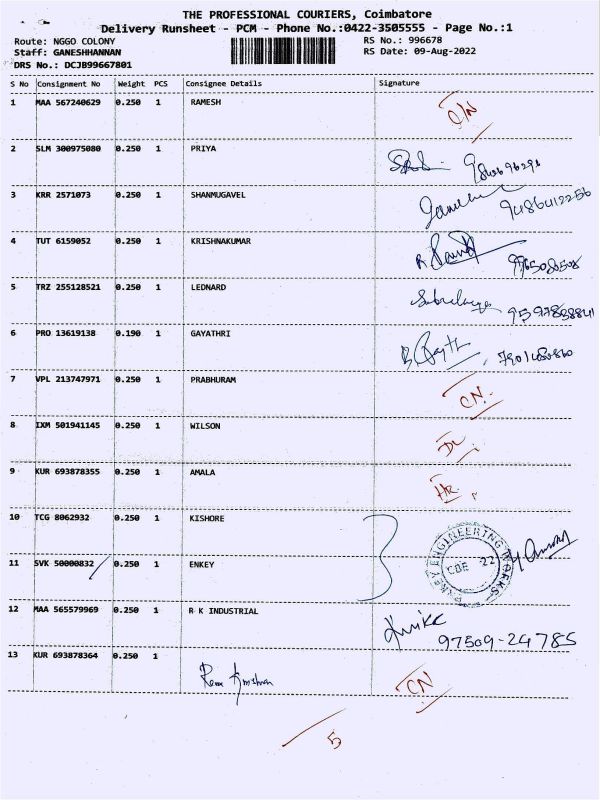 THE PROFESSIONAL COURIERS, Coimbatore
Delivery Runsheet - PCM - Phone No.:0422-3505555 - Page No.:1
Route: NGGO COLONY RS No.: 996678
Staff: GANESHHANNAN RS Date: 09-Aug-2022
DRS No.: DCJB99667801
S No Consignment No Weight PCS Consignee Details Signature
1 MAA 567240629 0.250 1 RAMESH
2 SLM 300975080 0.250 1 PRIYA
3 KRR 2571073 0.250 1 SHANMUGAVEL 9486412256
4 TUT 6159052 0.250 1 KRISHNAKUMAR
5 TRZ 255128521 0.250 1 LEDNARD
6 PRO 13619138 0.190 1 GAYATHRI
7 VPL 213747971 0.250 1 PRABHURAM CN
8 IXM 501941145 0.250 1 WILSON DL
9 KUR 693878355 0.250 1 AMALA HR
10 TCG 8062932 0.250 1 KISHORE
11 SVK 50000832 0.250 1 ENKEY ENKEY ENGINEERING WORKS
12 MAA 565579969 0.250 1 R K INDUSTRIAL 97509-24785
13 KUR 693878364 0.250 1 Rama Krishnan CN
5